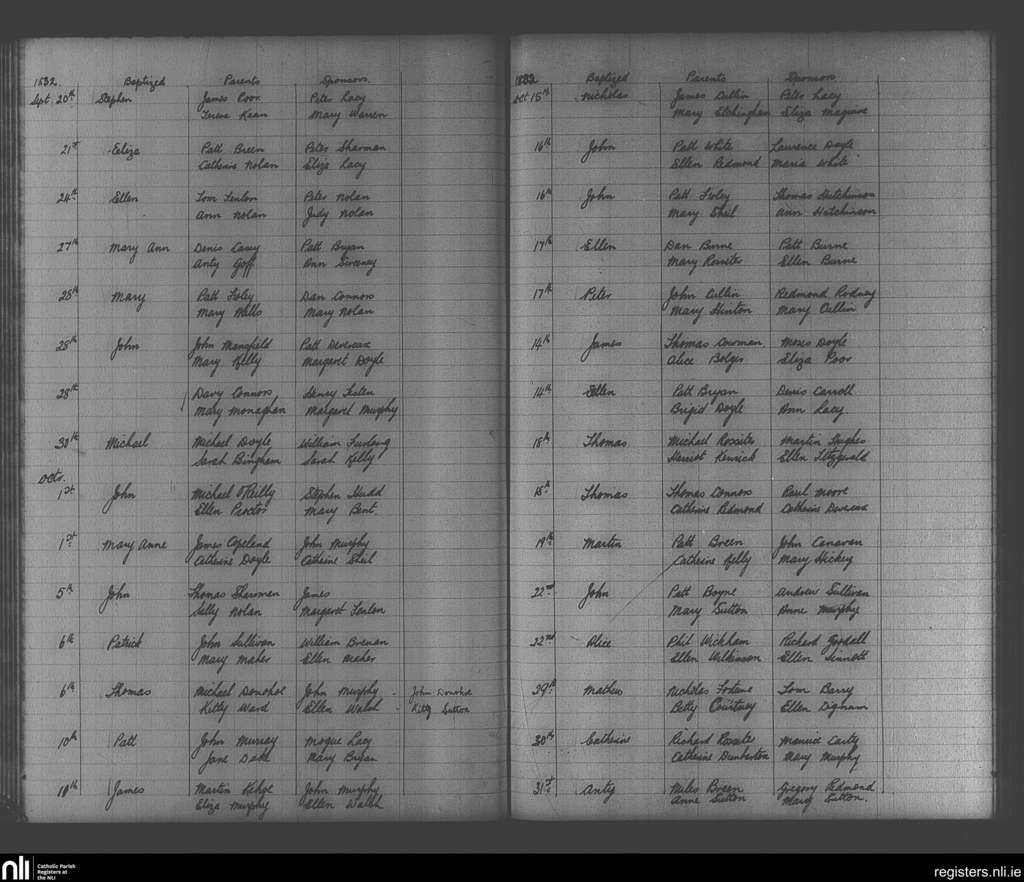 1832. Baptized Parents Sponsors
Sept. 20th Stephen James Poor Peter Lacy
Teresa Kean Mary Warren
21st Eeliza Patt Breen Peter Sharman
Catherine Nolan Eliza Lacy
24th Ellen Tom Fenlon Peter Nolan
Ann Nolan Judy Nolan
27th Mary Ann Denis Casey Patt Bryan
Anty Goff Ann Sweeney
28th Mary Patt Foley Dan Connors
Mary Mills Mary Nolan
28th John John Mansfield Patt Devereux
Mary Kelly Margaret Doyle
28th Davy Connors Henry
Mary Monaghan Margaret Murphy
30th Michael Michael Doyle William Furlong
Sarah Bingham Sarah Kelly
Octr.
1st John Michael O'Reilly Stephen Hudd
Ellen Proctor Mary Bent
1st Mary Anne James Copeland John Murphy
Catherine Doyle Catherine Sheil
5th John Thomas Sharman James
Sally Nolan Margaret Fenlon
6th Patrick John Sullivan William Brenan
Mary Maher Ellen Maher
6th Thomas Michael Donohoe John Murphy - John Donohoe
Kitty Ward Ellen Walsh - Kitty Sutton
10th Patt John Murray Mogue Lacy
Jane Dake Mary Bryan
10th James Martin Kehoe John Murphy
Eliza Murphy Ellen Walsh
1832 Baptized Parents Sponsors
Oct 15th Nicholas James Cullin Peter Lacy
Mary Etchingham Eliza Maguire
16th John Patt White Laurence Doyle
Ellen Redmond Maria White
16th John Patt Foley Thomas Hutchinson
Mary Sheil Ann Hutchinson
17th Ellen Dan Burne Patt Burne
Mary Rossiter Ellen Burne
17th Peter John Cullin Redmond Rodney
Mary Hinton Mary Cullin
14th James Thomas Cowman Moses Doyle
Alice Bolger Eliza Poor
14th Ellen Patt Bryan Denis Carroll
Brigid Doyle Ann Lacy
18th Thomas Michael Rossiter Martin Hughes
Harriot Kenrick Ellen Fitzgerald
18th Thomas Thomas Connors Paul Moore
Catherine Redmond Catherine Devereux
19th Martin Patt Breen John Canavan
Catherine Kelly Mary Hickey
22nd John Patt Boyne Andrew Sullivan
Mary Sutton Anne Murphy
22nd Alice Phil Wickham Richard Goodall
Ellen Wilkinson Ellen Sinnott
29th Mathew Nicholas Fortune Tom Barry
Betty Courtney Ellen Dignam
30th Catherine Richard Rossiter Maurice Carty
Catherine Dunbarton Mary Murphy
31st Anty Miles Breen Gregory Redmond
Anne Sutton Mary Sutton.
nli Catholic Parish
Registers at
the NLI
registers.nli.ie